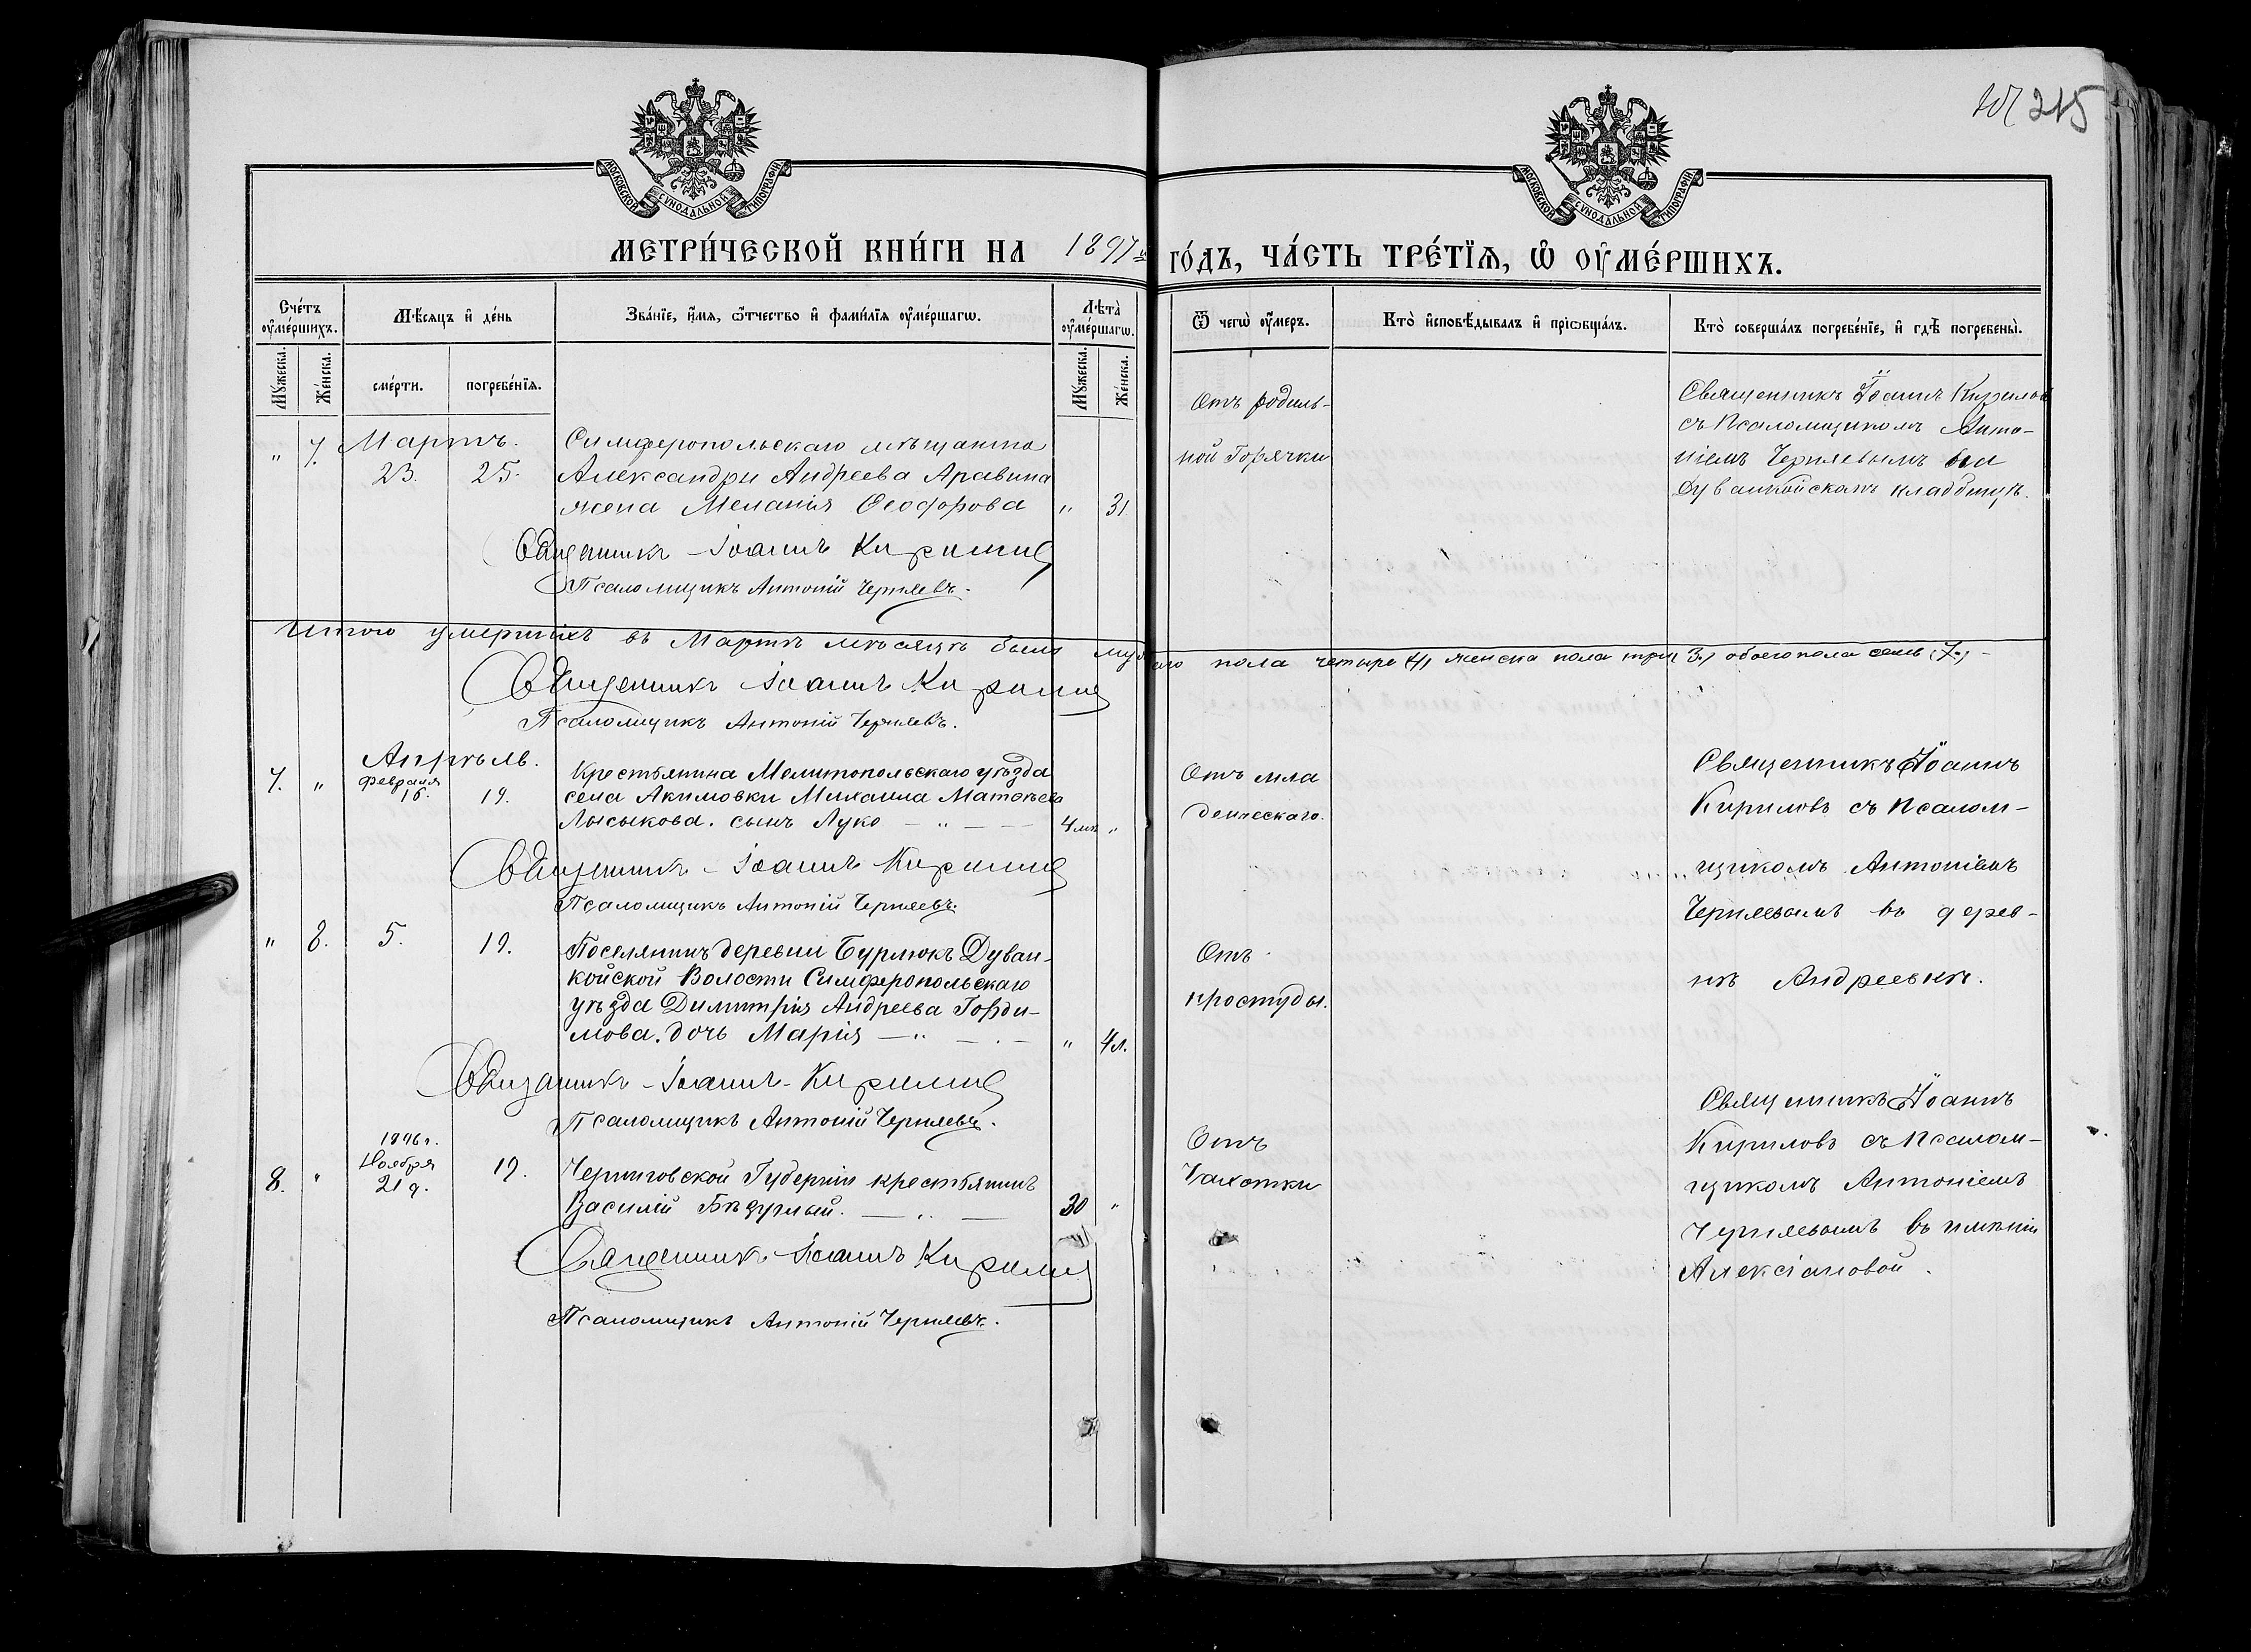 215
МОСКОВСКОЙ СѴНОДАЛЬНОЙ ТИПОГРАФІИ
МОСКОВСКОЙ СѴНОДАЛЬНОЙ ТИПОГРАФІИ
МЕТРИ́ЧЕСКОЙ КНИ́ГИ НА 1897 ГО́ДЪ, ЧА́СТЬ ТРЕ́ТЇѦ, Ѡ҆ ОУ҆МЕ́РШИХЪ.
Сче́тъ оу҆ме́ршихъ.
Мѣ́сѧцъ и҆ де́нь
Зва́нїе, и҆́мѧ, ѻ҆́тчество и҆ фами́лїѧ оу҆ме́ршагѡ.
Лѣта̀ оу҆ме́ршагѡ.
Ѿ чегѡ̀ оу҆́меръ.
Кто̀ и҆сповѣ́дывалъ и҆ прїѡбща́лъ.
Кто̀ соверша́лъ погребе́нїе, и҆ гдѣ̀ погребены̀.
Мꙋ́жеска.
Же́нска.
сме́рти.
погребе́нїѧ.
Мꙋ́жеска.
Же́нска.
" 7. Мартъ. 23. 25.
Симферопольскаго мѣщанина
Александри Андреева Аравина
жена Меланія Ѳеодорова " 31
Отъ родиль-
ной Горячки
Священникъ Іоаннъ Кирилов
съ Псаломщикомъ Анто-
ніемъ Черняевымъ на
Дуванкойскомъ кладбищѣ.
Священникъ Іоаннъ Кирилловъ
Псаломщикъ Антоній Черняевъ.
Итого умершихъ въ Мартѣ мѣсяцѣ было муж­аго пола четыре (4) женска пола три 3.) обоего пола семь (7.)
Священникъ Іоаннъ Кирилловъ
Псаломщикъ Антоній Черняевъ.
Апрѣль.
7. " Февраля 16. 19.
Крестьянина Мелитопольскаго уѣзда
села Акимовки Михаила Матѳѣева
Лысыкова. сынъ Луко — " — 4 мѣ "
Отъ мла
денческаго.
Священникъ Іоаннъ
Кириловъ съ Псалом-
щикомъ Антоніемъ
Черняевымъ въ дерев-
нѣ Андреевкѣ.
Священникъ Іоаннъ Кирилловъ
Псаломщикъ Антоній Черняевъ.
" 8. 5. 19.
Поселянинъ деревни Бурлюкъ Дуван-
койской Волости Симферопольскаго
уѣзда Димитрія Андреева Горди-
мова. дочь Марія — " — " 4 л.
Отъ
простуды.
Священникъ Іоаннъ Кирилловъ
Псаломщикъ Антоній Черняевъ.
8. " 1896 г. Ноября 21 д. 19.
Черниговской Губерніи крестьянинъ
Василій Бѣдулый. — " — 30 "
Отъ
Чахотки
Священникъ Іоаннъ
Кириловъ съ Псалом-
щикомъ Антоніемъ
Черняевымъ въ имѣніи
Алексіановой.
Священникъ Іоаннъ Кирилловъ
Псаломщикъ Антоній Черняевъ.